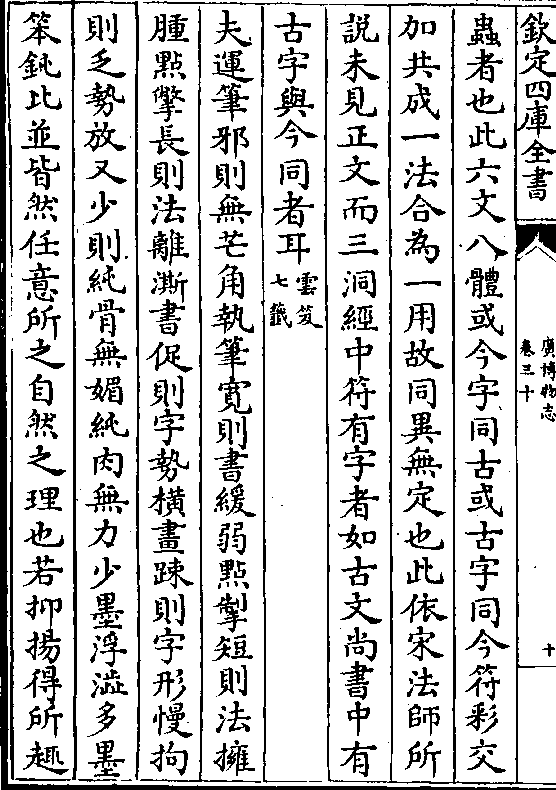 欽定四庫全書
廣博物志
卷三十
十
蟲者也此六文八體或今字同古或古字同今符彩交
加共成一法合為一用故同異無定也此依宋法師所
説未見正文而三洞經中符有字者如古文尚書中有
古字與今同者耳雲笈七籤
夫運筆邪則無芒角執筆寛則書緩弱點掣短則法擁
腫點擎長則法離澌書促則字勢橫畫踈則字形慢拘
則乏勢放又少則純骨無媚純肉無力少墨浮澁多墨
笨鈍比並皆然任意所之自然之理也若抑揚得所趣